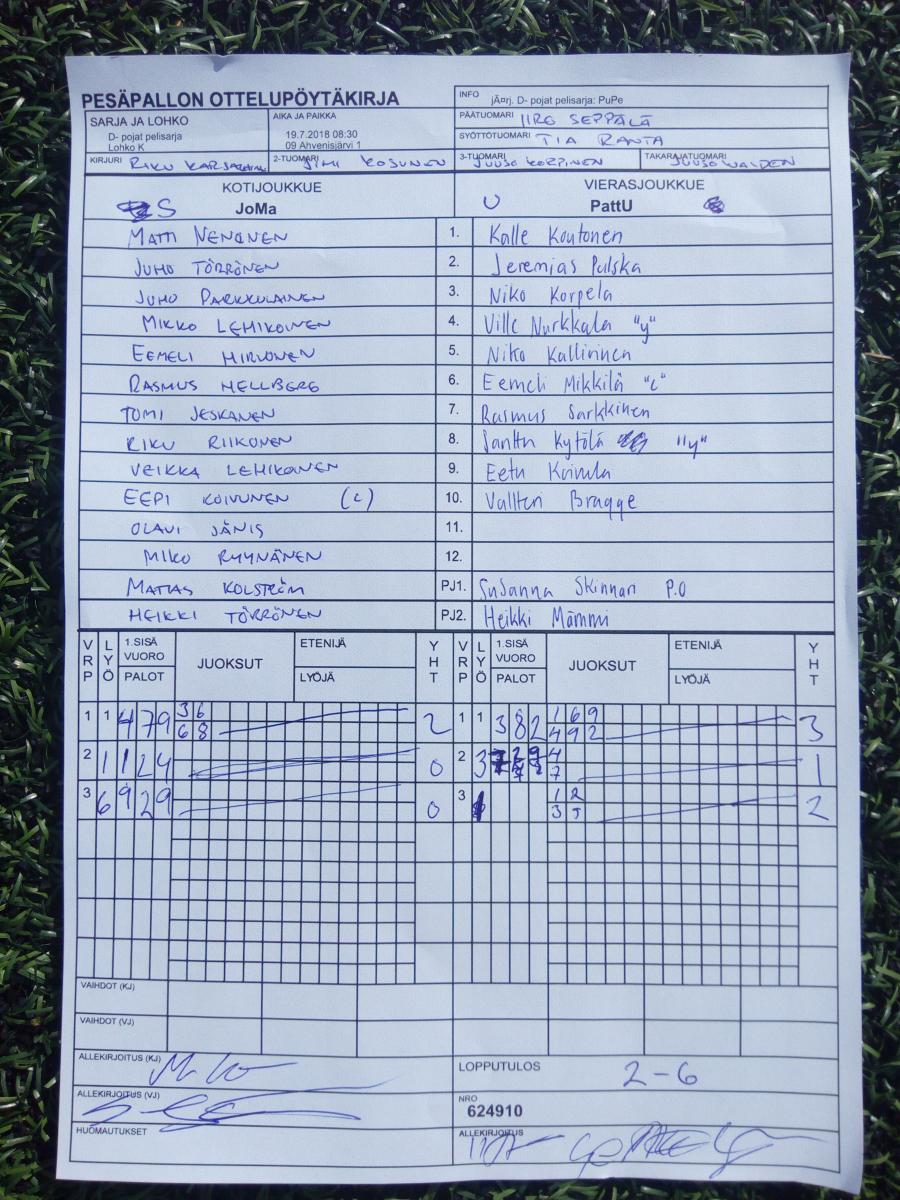 PESÄPALLON OTTELUPÖYTÄKIRJA
INFO jÃ¤rj. D- pojat pelisarja: PuPe
SARJA JA LOHKO
D- pojat pelisarja
Lohko K
AIKA JA PAIKKA
19.7.2018 08:30
09 Ahvenisjärvi 1
PÄÄTUOMARI IIRO SEPPÄLÄ
SYÖTTÖTUOMARI TIA RANTA
KIRJURI RIKU
2-TUOMARI JIMI KOSUNEN
3-TUOMARI JUUSO KORPINEN
TAKARAJATUOMARI JUUSO WALDEN
KOTIJOUKKUE VIERASJOUKKUE
S JoMa U PattU
MATTI NENONEN 1. Kalle Koutonen
JUHO TÖRRÖNEN 2. Jeremias Pulska
JUHO PARKKULAINEN 3. Niko Korpela
MIKKO LEHIKOINEN 4. Ville Nurkkala "y"
EEMELI HIRVONEN 5. Niko Kallirinen
RASMUS HELLBERG 6. Eemeli Mikkilä "c"
TOMI JESKANEN 7. Rasmus Sarkkinen
RIKU RIIKONEN 8. Santtu Kytölä "y"
VEIKKA LEHIKOINEN 9. Eetu Koivula
EEPI KOIVUNEN (C) 10. Valtteri Bragge
OLAVI JÄNIS 11.
MIKO RYYNÄNEN 12.
MATIAS KOLSTRÖM PJ1. Susanna Skinnari P.O
HEIKKI TÖRRÖNEN PJ2. Heikki Mämmi
VRP LYÖ 1.SISÄ VUORO PALOT JUOKSUT ETENIJÄ LYÖJÄ YHT VRP LYÖ 1.SISÄ VUORO PALOT JUOKSUT ETENIJÄ LYÖJÄ YHT
1 1 4 7 9 3 6 2 1 1 3 8 2 1 6 9 3
6 8 4 9 2
2 1 1 2 4 0 2 3 4 1
7
3 6 9 2 9 0 3 1 2 2
3 5
VAIHDOT (KJ)
VAIHDOT (VJ)
ALLEKIRJOITUS (KJ)
LOPPUTULOS 2-6
ALLEKIRJOITUS (VJ)
NRO
624910
HUOMAUTUKSET
ALLEKIRJOITUS